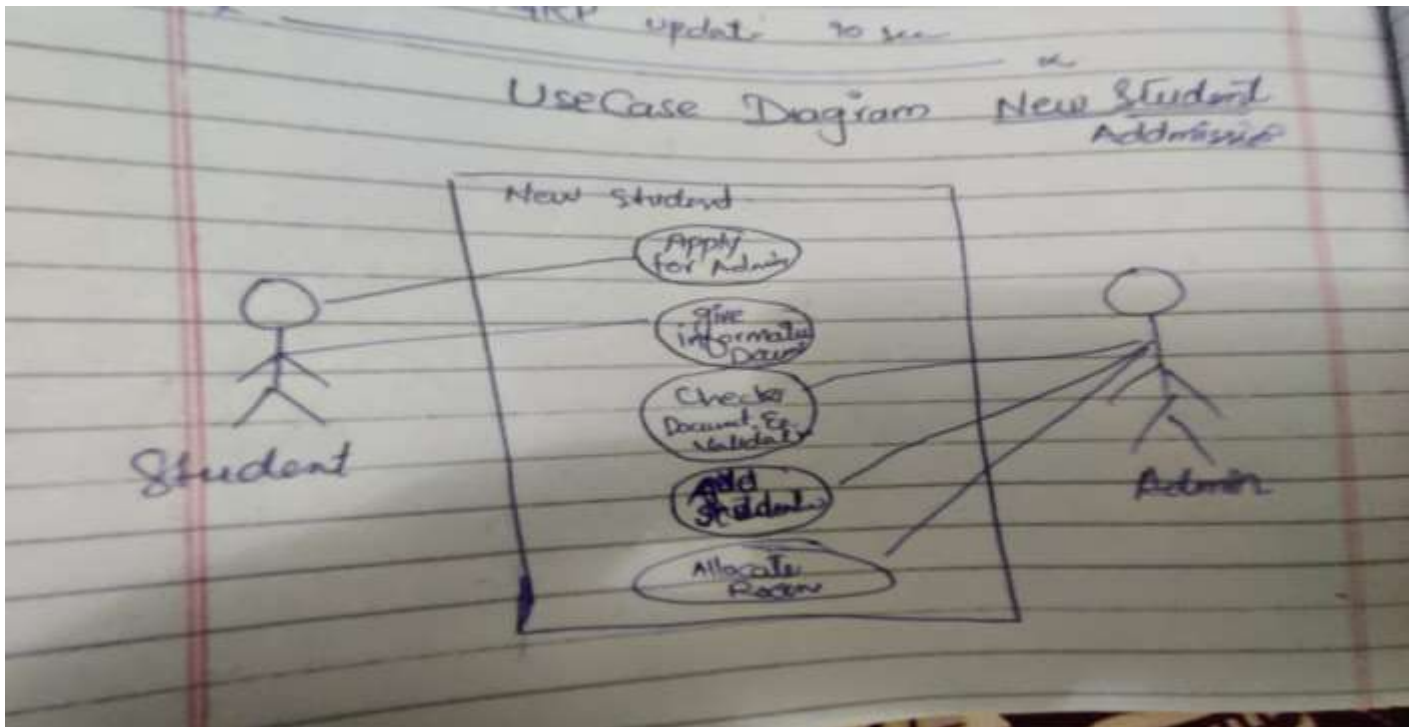 update 90 sec
UseCase Diagram New Student
Addmissio
New Student
Apply
for Admis
give
informatu
Doumt
Checks
Document &
Validat
Add
Students
Allocate
Room
Student
Admin